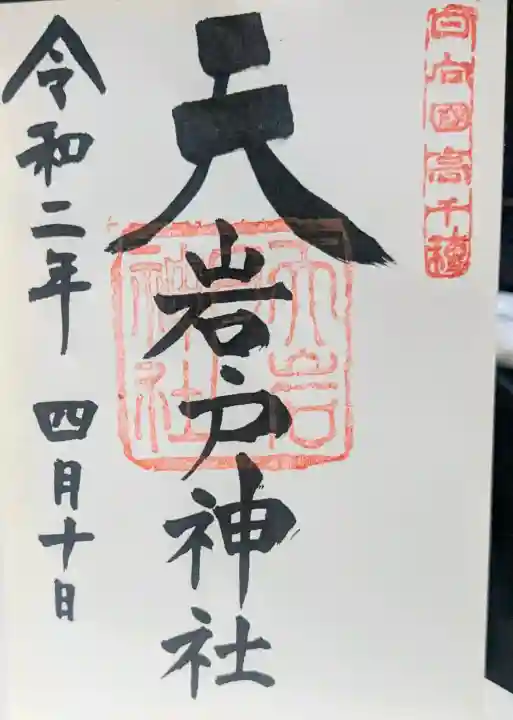 日向國高千穂
天岩戸神社
天岩戸神社
令和二年 四月十日